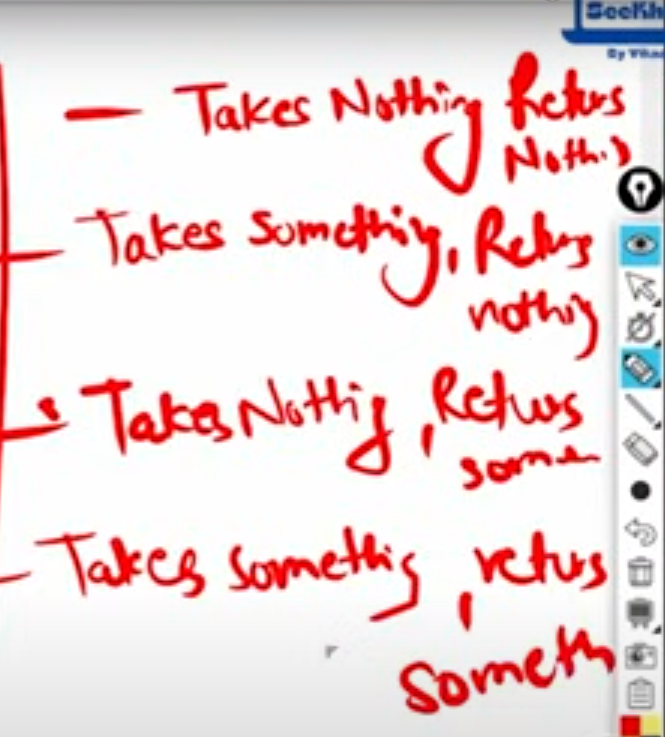 Seekh
By Vikas
— Takes Nothing Returs
Nothi)
Takes Something, Returs
nothing
Takes Nothing, Returs
some
Takes something, returs
someth